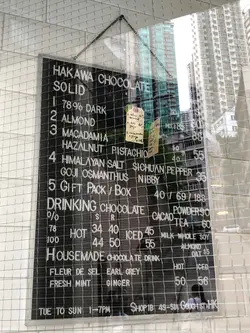 HAKAWA CHOCOLATE
SOLID
1 78% DARK
2 ALMOND
3 MACADAMIA
HAZALNUT PISTACHIO 55
4 HIMALAYAN SALT SICHUAN PEPPER
GOJI OSMANTHUS NIBBY 35
5 GIFT PACK / BOX 40 / 69 / 188
DRINKING CHOCOLATE POWDER
% CACAO
78 HOT 34 40 ICED 45 TEA
100 44 50 55 MILK WHOLE SOY
ALMOND
OAT
HOUSEMADE CHOCOLATE DRINK
HOT ICED
FLEUR DE SEL EARL GREY
FRESH MINT GINGER 50 56
TUE TO SUN 1-7PM SHOP 1B 49-51A GOUGH ST. HK